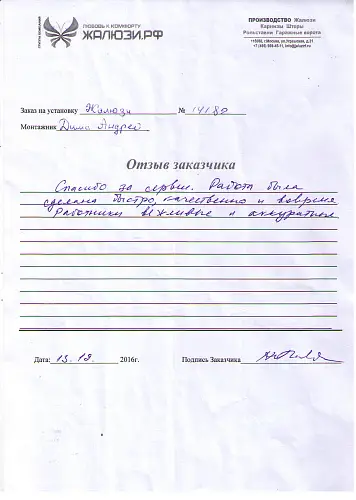 ЛЮБОВЬ К КОМФОРТУ
ЖАЛЮЗИ.РФ
ПРОИЗВОДСТВО Жалюзи
Карнизы Шторы
Рольставни Гаражные ворота
Заказ на установку Жалюзи № 14180
Монтажник Дима Андрей
Отзыв заказчика
Спасибо за сервис. Работа была
сделана быстро, качественно и вовремя
Работники вежливые и аккуратные
Дата: 13.12. 2016г. Подпись Заказчика